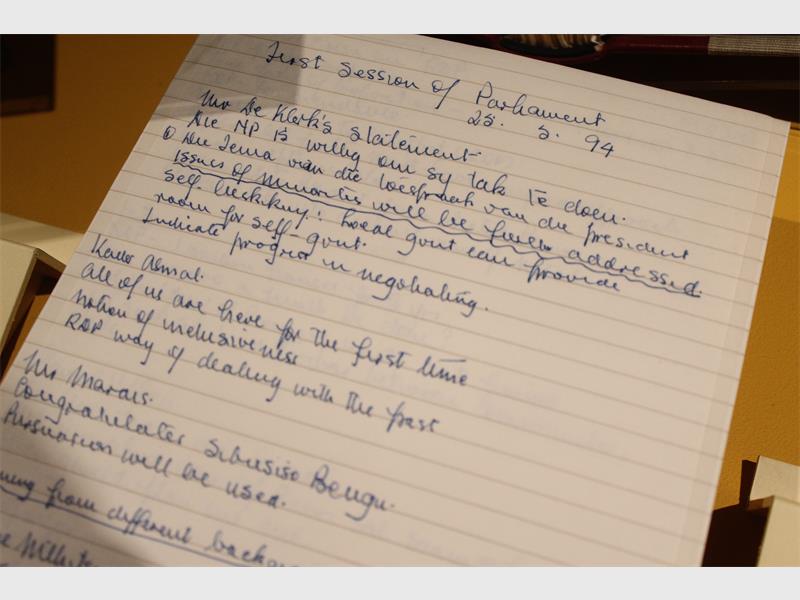 First Session of Parliament
25. 5. 94
Mr De Klerk's statement
Die NP is willig om sy tak te doen.
Die Tema van die toespraak van die president
Issues of minorities will be further addressed.
Self. beskikking: Local govt can provide
room for self-govt.
Indicate progress in negotiating.
Kader Asmal.
All of us are here for the first time
notion of inclusiveness
RDP way of dealing with the past
Mr Marais.
Congratulates Sibusiso Bengu.
Persuasion will be used.
from different